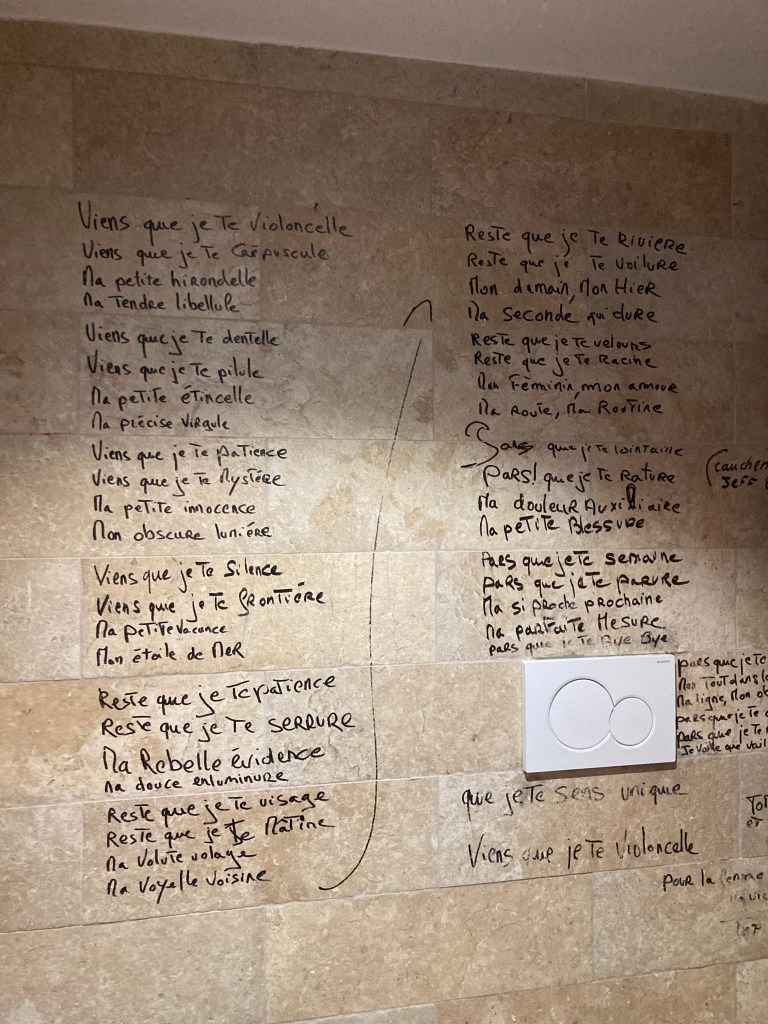 Viens que je Te Violoncelle
Viens que je Te Crépuscule
Ma petite hirondelle
Ma Tendre libellule
Viens que je Te dentelle
Viens que je Te pilule
Ma petite étincelle
Ma précise Virgule
Viens que je Te patience
Viens que je Te Mystère
Ma petite innocence
Mon obscure lumière
Viens que je Te Silence
Viens que je Te frontière
Ma petite vacance
Mon étoile de MER
Reste que je Te patience
Reste que je Te SERRURE
Ma Rebelle évidence
Ma douce enluminure
Reste que je Te visage
Reste que je Te Mâtine
Ma Volute volage
Ma Voyelle Voisine
Reste que je Te RIVIERE
Reste que je Te Voilure
Mon demain, Mon HIER
Ma Seconde qui dure
Reste que je Te velours
Reste que je Te Racine
Mon Féminin, mon amour
Ma Route, Ma Routine
Pars que je te lointaine
PARS! que je Te Rature
Ma douleur Auxiliaire
Ma petite Blessure
Pars que je Te semaine
Pars que je Te parure
Ma si proche prochaine
Ma parfaite Mesure
Pars que je Te Bye Bye
que je Te sens unique
Viens que je Te Violoncelle
(cauchem
JEFF
pars que je Te
Mon Tout dans
Ma ligne, Mon
pars que je Te
pars que je Te
Je Voile que
et
POUR la femme